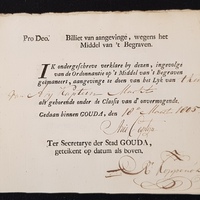 Pro Deo. Billiet van aangevinge, wegens het
Middel van 't Begraven.
IK ondergeschreve verklare by desen, ingevolge
van de Ordonnantie op 't Middel van 't Begraven
geëmaneert, aangevinge te doen van het Lyk van
als gehorende onder de Classis van d'onvermogende.
Gedaan binnen GOUDA, den 16 Maart 1805
Ter Secretarye der Stad GOUDA,
geteikent op datum als boven.